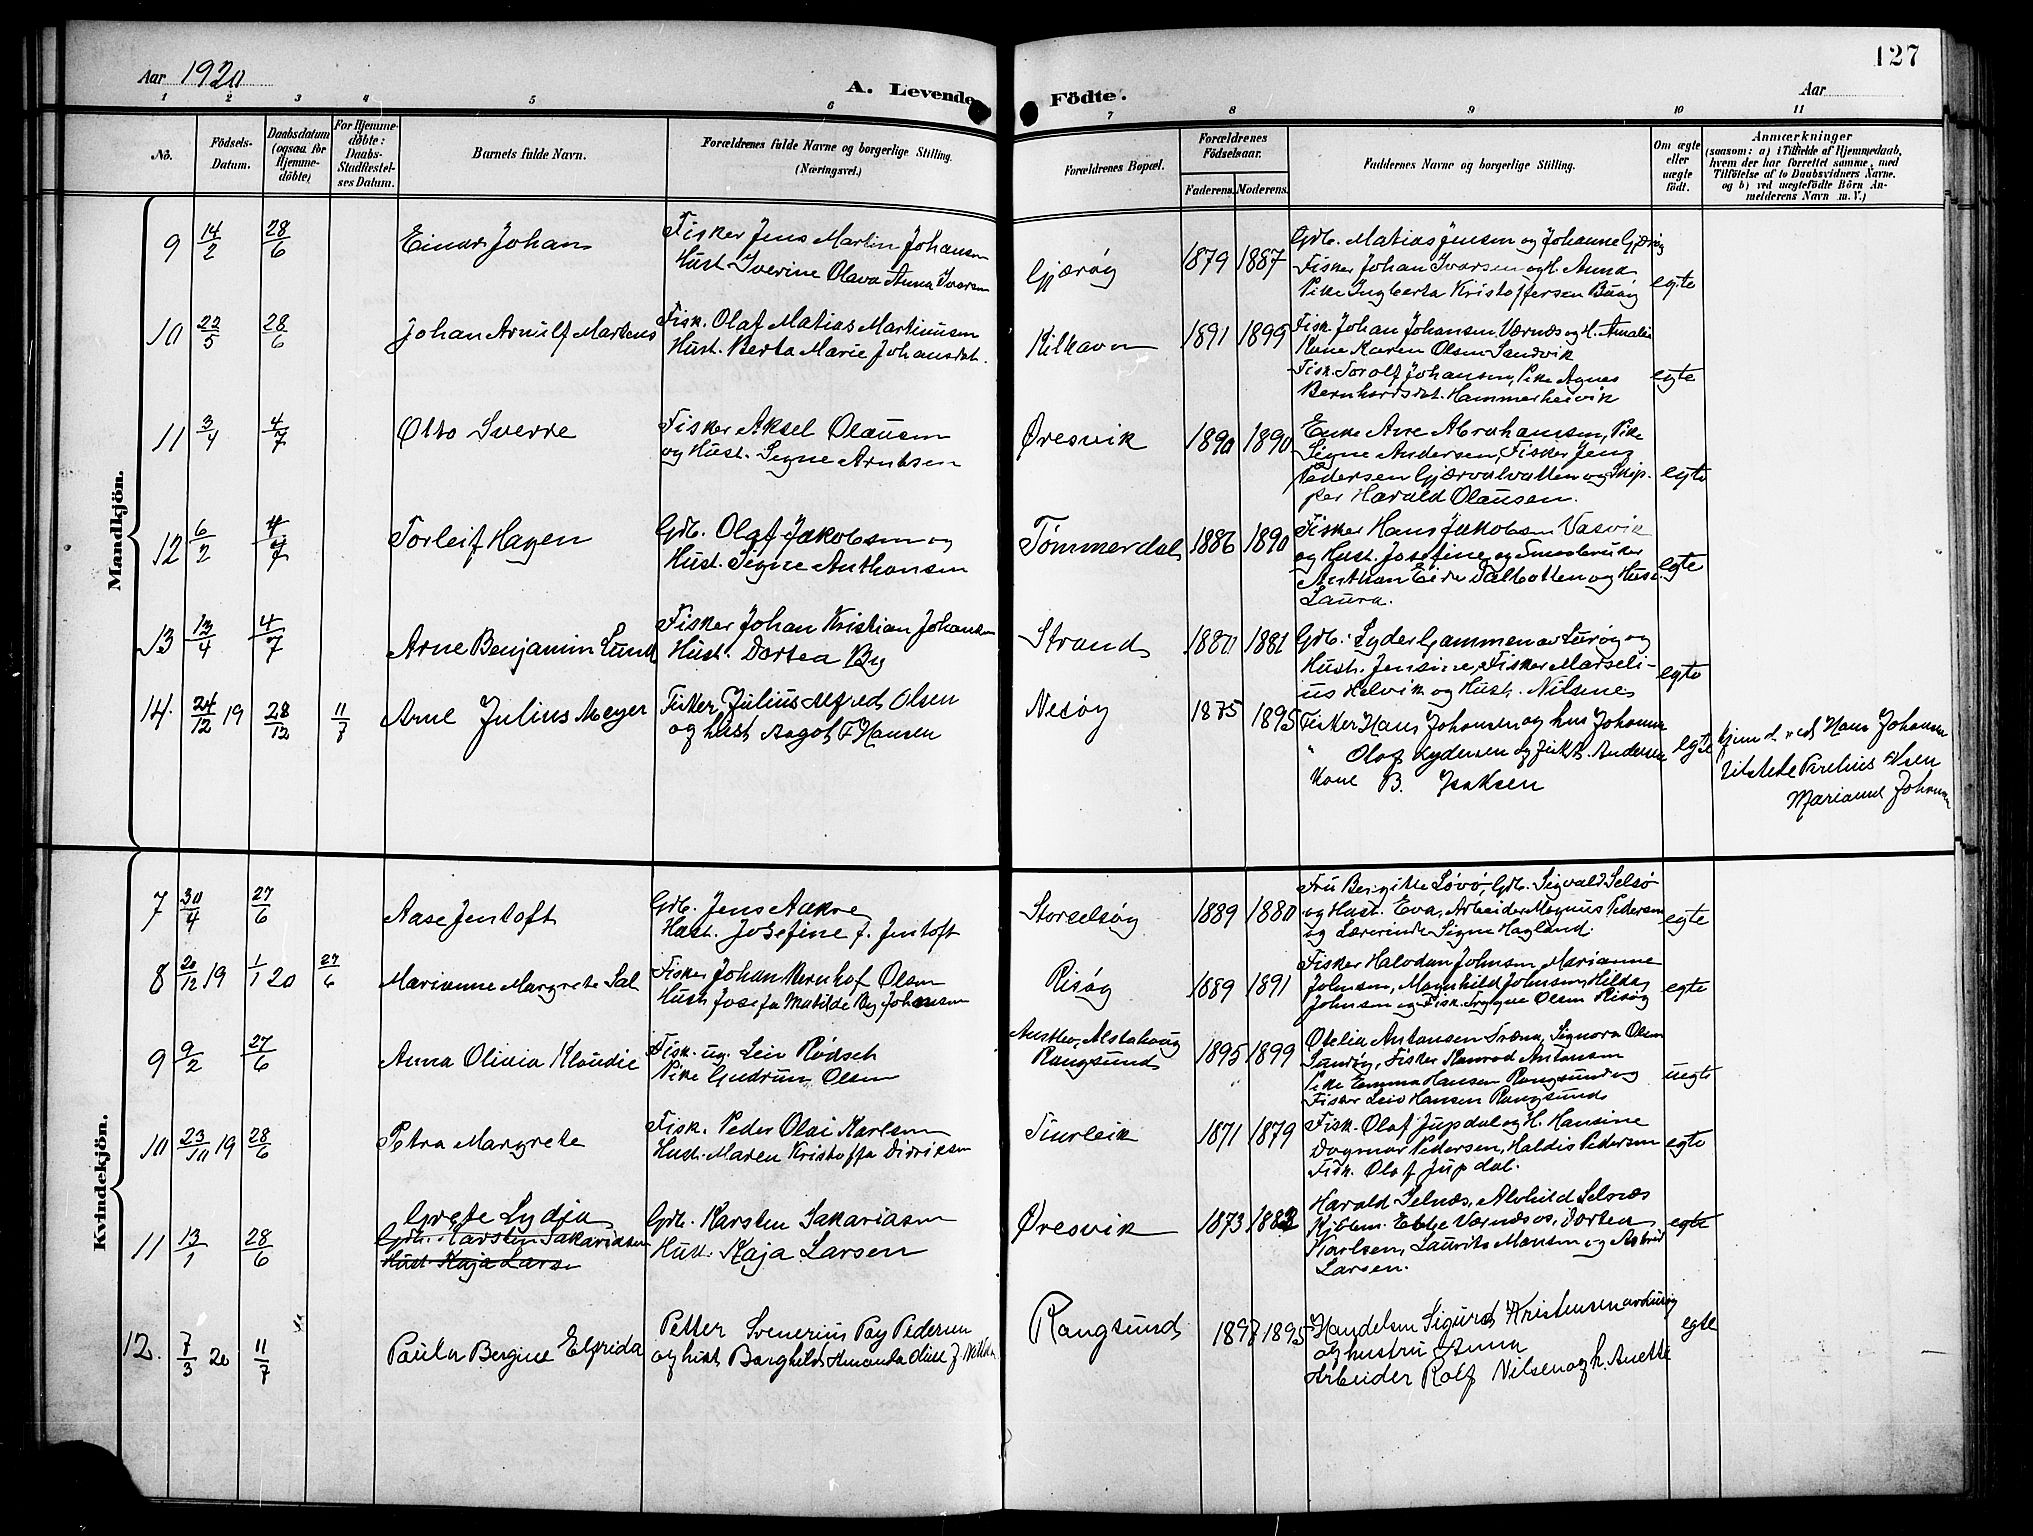 127
Aar 1920
A. Levende Födte.
Aar
1 2 3 4 5 6 7 8 9 10 11
No.
Födsels-Datum.
Daabsdatum (ogsaa for Hjemme-döbte)
For Hjemme-döbte: Daabs-Stadfæstel-ses Datum.
Barnets fulde Navn.
Forældrenes fulde Navne og borgerlige Stilling. (Næringsvei.)
Forældrenes Bopæl.
Forældrenes Födselsaar.
Faderens. Moderens.
Faddernes Navne og borgerlige Stilling.
Om ægte eller uægte födt.
Anmærkninger
(saasom: a) i Tilfælde af Hjemmedaab,
hvem der har forrettet samme, med
Tilföielse af to Daabsvidners Navne.
og b) ved uægtefödte Börn An-
melderens Navn m. V.)
Mandkjön.
9 14/2 28/6 Einar Johan
Fisker Jens Martin Johansen
Hust. Iverine Olava Anna Ivarsen
Gjærøy 1879 1887
Grdb. Matias Jensen og Johanne Gjærøy
Fisker Johan Ivarsen og H. Anna
Pike Ingberta Kristoffersen Buøy
egte
10 22/5 28/6 Johan Arnulf Martens
Fisk. Olaf Matias Martinusen
Hust. Berta Marie Johansdat.
Kilhavn 1891 1899
Fisk. Johan Johansen Værnes og H. Amalie
Kone Karen Olsen Sandvik
Fisk. Torolf Johansen, Pike Agnes
Bernhardsdat. Hammerheivik
egte
11 3/4 4/7 Otto Sverre
Fisker Aksel Olausen
og Hust. Signe Arntsen
Øresvik 1890 1890
Enke Ane Abrahamsen, Pike
Signe Andersen, Fisker Jens
Pedersen Gjærvalvatten og Skip-
per Harald Olausen.
egte
12 6/2 4/7 Torleif Hagen
Grdb. Olaf Jakobsen og
Hust. Signe Anthonsen
Tømmerdal 1886 1890
Fisker Hans Jakobsen Vasvik
og Hust. Josefine og Smaabruker
Anthon Eide Dalbotten og Hust.
Laura.
egte
13 12/4 4/7 Arne Benjamin Lund
Fisker Johan Kristian Johansen
Hust. Dortea By
Strand 1880 1881
Grdb. Lyder Gammen av Lurøy og
Hust. Jensine, Fisker Marseli-
us Helvik og Hust. Nilsine
egte
14. 24/12 19 28/12 11/7 Arne Julius Meyer
Fisker Julius Alfred Olsen
og hust Aagot F Hansen
Nesøy 1875 1895
Fisker Hans Johansen og hus Johanna
" Olaf Lydersen og Fisk. Andersen
Kone B. Isaksen
egte
hjemd. ved Hans Johansen
tilstede Parelius Olsen
Mariane Johansen
Kvindekjön.
7 30/4 27/6 Aase Jentoft
Grdb. Jens Aakre
Hust. Josefine f. Jentoft
Storselsøy 1889 1880
Fru Bergitte Løvø, Grdb. Sigvald Selsø
og Hust. Eva, Arbeider Magnus Pedersen
og Lærerinde Signe Hagland.
egte
8 20/12 19 1/1 20 27/6 Marianne Margrete Sal
Fisker Johan Bernhof Olsen
Hust. Josefa Matilde By Johansen
Risøy 1889 1891
Fisker Halvdan Johnsen Marianne
Johnsen, Magnhild Johnsen, Hilda
Johnsen og Fisk. Trygve Olsen Risøy
egte
9 9/2 27/6 Anna Olivia Klaudie
Fisk. ug. Leiv Rødseth
Pike Gudrun Olsen
Austbø, Alstahoug
Rangsund 1895 1899
Otelia Antonsen Træna, Signora Olsen
Sandøy, Fisker Konrad Antonsen
Pike Emma Hansen Rangsund og
Fisker Leiv Hansen Rangsund
uegte
10 23/10 19 28/6 Petra Margrete
Fisk. Peder Olai Karlsen
Hust. Maren Kristoffa Didriksen
1871 1879
Fisk. Olaf Jupdal og H. Hansine
Dagmar Pedersen, Haldis Pedersen
Fisk. Olaf Jupdal.
egte
11 13/1 28/6 Grete Lydia
Grdb. Karsten Sakariasen
Hust. Kaja Larsen
Grdb. Karsten Sakariasen
Hust. Kaja Larsen
Øresvik 1873 1883
Harald Selnæs, Alvhild Selnæs
Kjøbm. Ebbe Værnesos, Dorten
Karlsen, Laurits Monsen og Astrid
Larsen.
egte
12. 7/3 20 11/7 Paula Bergine Elfrida
Petter Svenerius Pay Pedersen
og hust Borghild Amanda Oline f. Nilsen
Rangsund 1897 1895
Handelsm Sigurd Kristensen av Lurøy
og hustru Anna
Arbeider Rolf Nilsen og h. Anette
egte